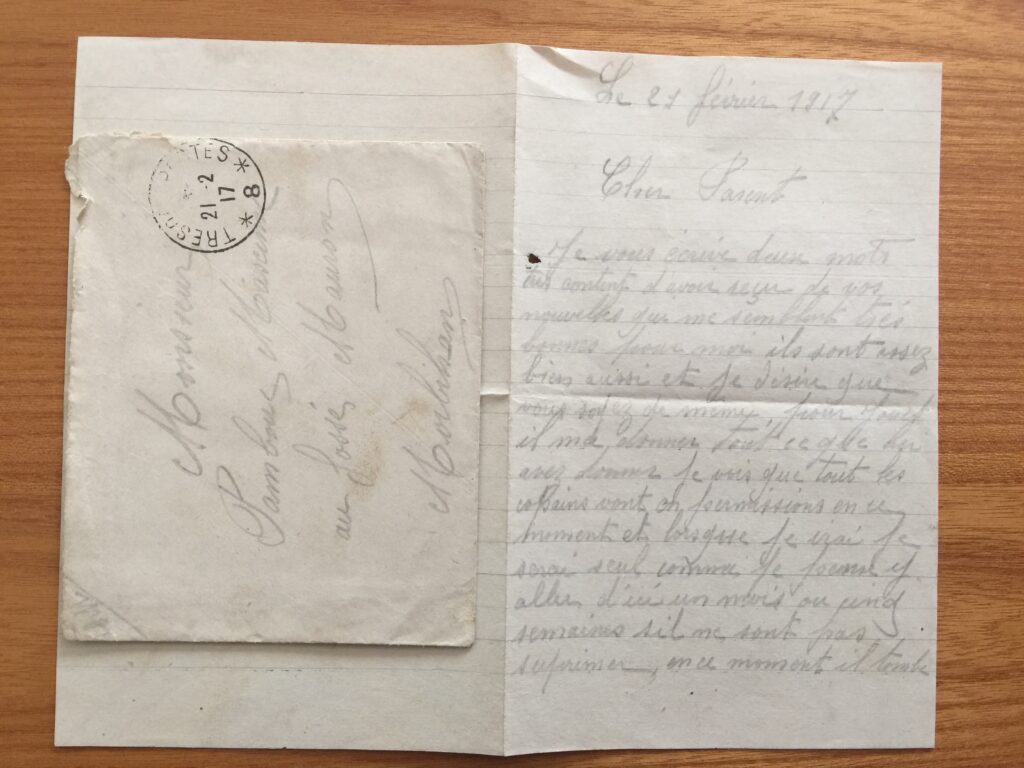 TRESOR
POSTES
* 8 *
21 -2
17
Monsieur
au fossés Mauron
Morbihan
Le 21 février 1917
Cher Parent
Je vous écrive deux mots
très content d'avoir reçu de vos
nouvelles qui me semblent très
bonnes pour moi ils sont assez
bien aussi et je désire que
vous soyez de même, pour
il ma donner tout ce que lui
avez donné je vois que tout les
copains vont en permissions en ce
moment et lorsque je irai je
serai seul comme je pense y
aller d'ici un mois ou cinq
semaines sil ne sont pas
suprimer, en ce moment il tombe